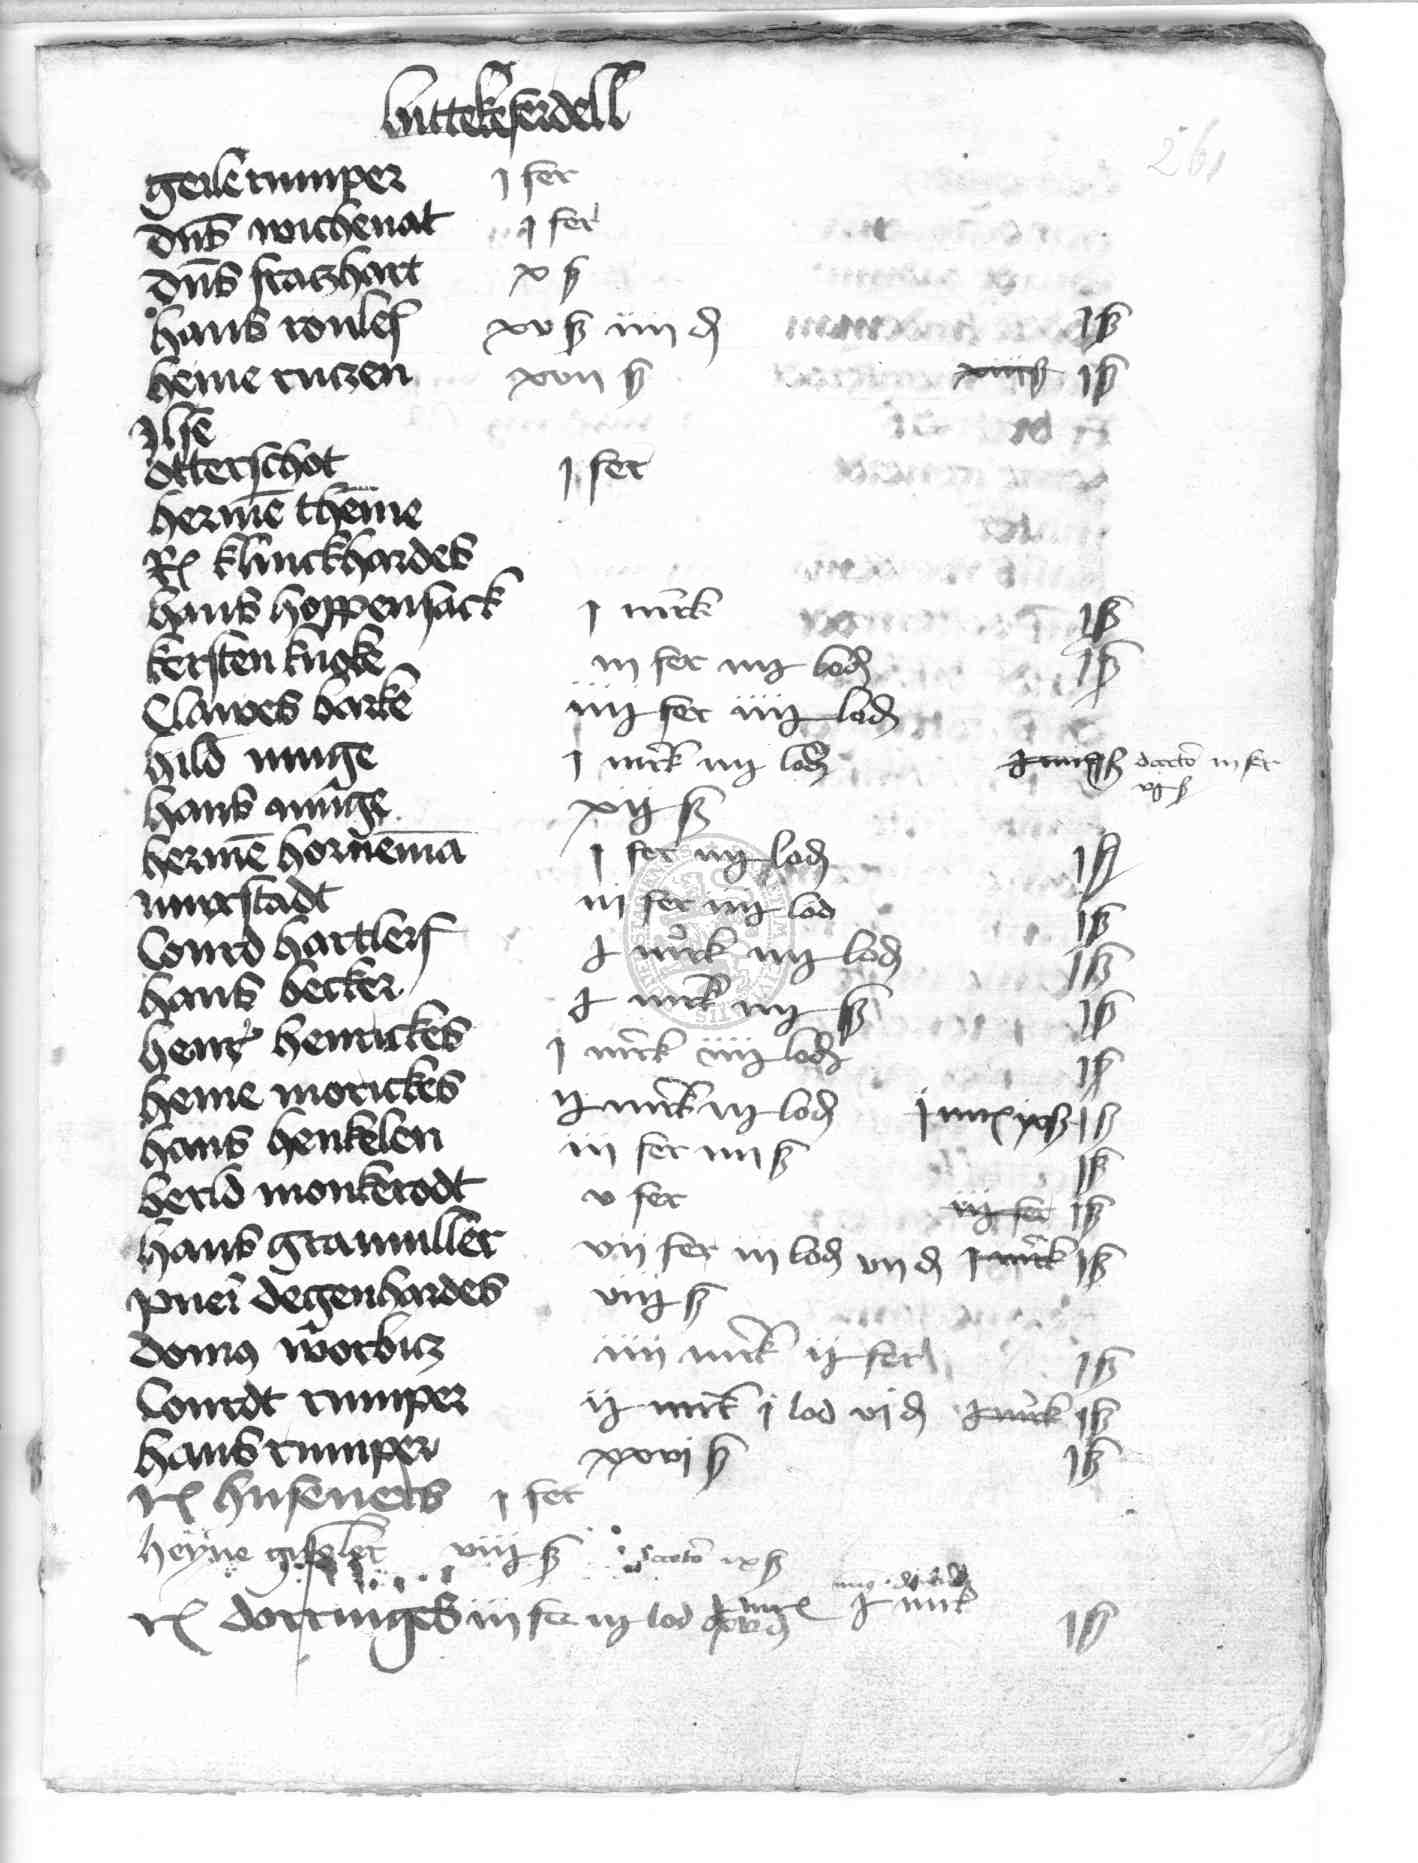 luttekeferdell
261
geile rumper j fer
dns wichenat j fer
dns fratzhart x ß
hans roulef xv ß iiii d j ß
heine rutzen xvii ß j ß
Ilse
otterschot j fer
hermē theme
Rx klinckhardes
hans hoppensack j mrck j ß
kersten kugke iii fer iiij lod j ß
Clawes barke iiij fer iiij lod
hild muge j mrck iij lod doctō iii fer
vij ß
hans muge xij ß
hermē hornemā j fer iiij lod j ß
murstadt iii fer iiij lod j ß
Courd hartlef j mrck iiij lod j ß
hans becker j mrck iiij ß j ß
henr henrickes j mrck iiij lod j ß
heine morickes ij mrck iij lod j mrx ixß j ß
hans henkelen iii fer iiii ß j ß
berld monkerodt v fer iij fer j ß
hans gramuller vii fer iii lod vii d j mrck j ß
pueri degenhardes viij ß
domus worbitz iiii mrck ij fer j ß
Courdt rumper ij mrck i lod vj d j mrck j ß
hans rumper xxvi ß j ß
rx huseners j fer
heyne giseler viij ß ix ß
rx dorringes iii fer iij lod j mrck j ß